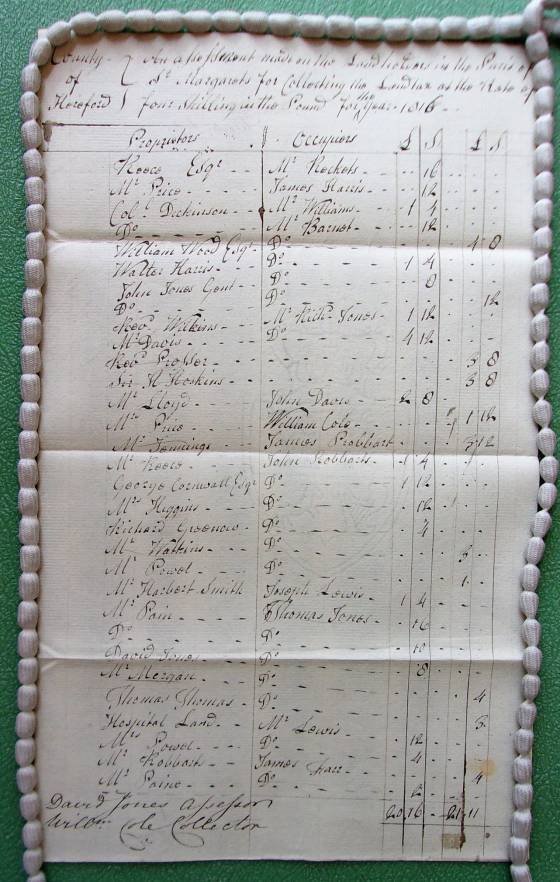 County { An assessment made on the Landholders in the Parish of
of St Margarets for Collecting the Landtax at the Rate of
Hereford } four Shilling in the Pound for the year 1816
Proprietors Occupiers £ S £ S
Reece Esqr Mr Rickets 16
Mr Price James Harris 12
Col. Dickinson Mr Williams 1 4
Do Mr Barnet 12
William Wood Esqr Do 4 8
Walter Harris Do 1 4
John Jones Gent Do 8
Do Do 12
Revd Wilkins Mr Richd Jones 1 12
Mr Davis Do 4 12
Revd Prosser 3 8
Sir H Hoskins 3 8
Mr Lloyd John Davis 2 8
Mr Price William Cole 1 12
Mr Jennings James Probbart 3 12
Mr Reece John Robbarts 1 4
George Cornwall Esqr Do 1 12
Mrs Higgins Do 12
Richard Greenow Do 4
Mr Watkins Do 3
Mr Powel Do 1
Mr Harbert Smith Joseph Lewis 1 4
Mr Pain Thomas Jones 16
Do Do 10
David Jones Do 8
Mr Morgan Do
Thomas Thomas Do 4
Hospital Land Mr Lewis 3
Mrs Powel Do 12
Mr Robbart James 4
Mr Paine Do 2 4
David Jones Assessor
Willm Cole Collector 20 16 21 11